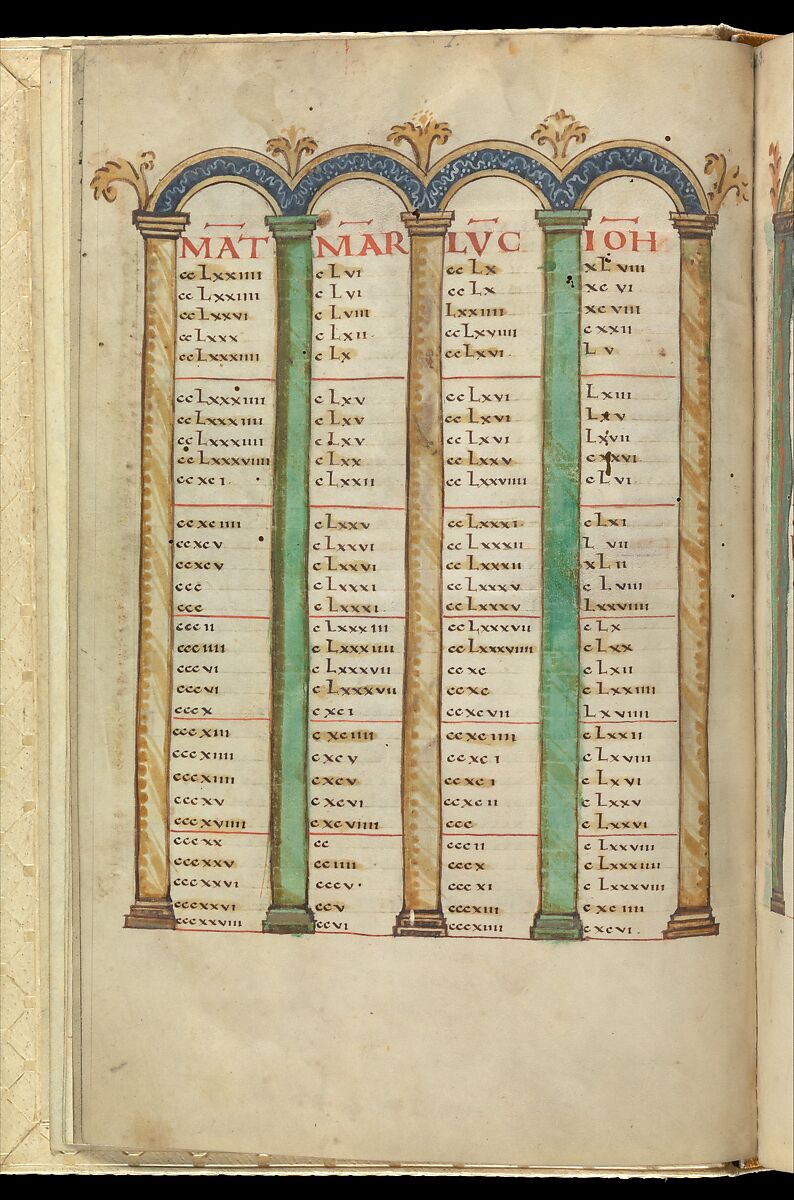 MAT MAR LUC IOH
ccLxxiiii cLvi ccLx xLviii
ccLxxiiii cLvi ccLx xcvi
ccLxxvi cLviii Lxxiiii xcviii
ccLxxx cLxii ccLxviiii cxxii
ccLxxxiiii cLx ccLxvi Lv
ccLxxxiiii cLxv ccLxvi Lxiii
ccLxxxiiii cLxv ccLxvi Lxv
ccLxxxiiii cLxv ccLxvi Lxvii
ccLxxxviiii cLxx ccLxxv cxxvi
ccxci cLxxii ccLxxviiii cLvi
ccxciiii cLxxv ccLxxxi cLxi
ccxcv cLxxvi ccLxxxii L vii
ccxcv cLxxvi ccLxxxii xLii
ccc cLxxxi ccLxxxv cLviii
ccc cLxxxi ccLxxxv Lxxviiii
cccii cLxxxiii ccLxxxvii cLx
ccciiii cLxxxiiii ccLxxxviiii cLxx
cccvi cLxxxvii ccxc cLxii
cccvi cLxxxvii ccxc cLxxiiii
cccx cxci ccxcvii Lxviiii
cccxiii cxciiii ccxciiii cLxxii
cccxiiii cxcv ccxci cLxviii
cccxiiii cxcv ccxci cLxvi
cccxv cxcvi ccxcii cLxxv
cccxviiii cxcviiii ccc cLxxvi
cccxx cc cccii cLxxviii
cccxxv cciiii cccx cLxxxiiii
cccxxvi cccv cccxi cLxxxviii
cccxxvi ccv cccxiii cxciiii
cccxxviii ccvi cccxiiii cxcvi